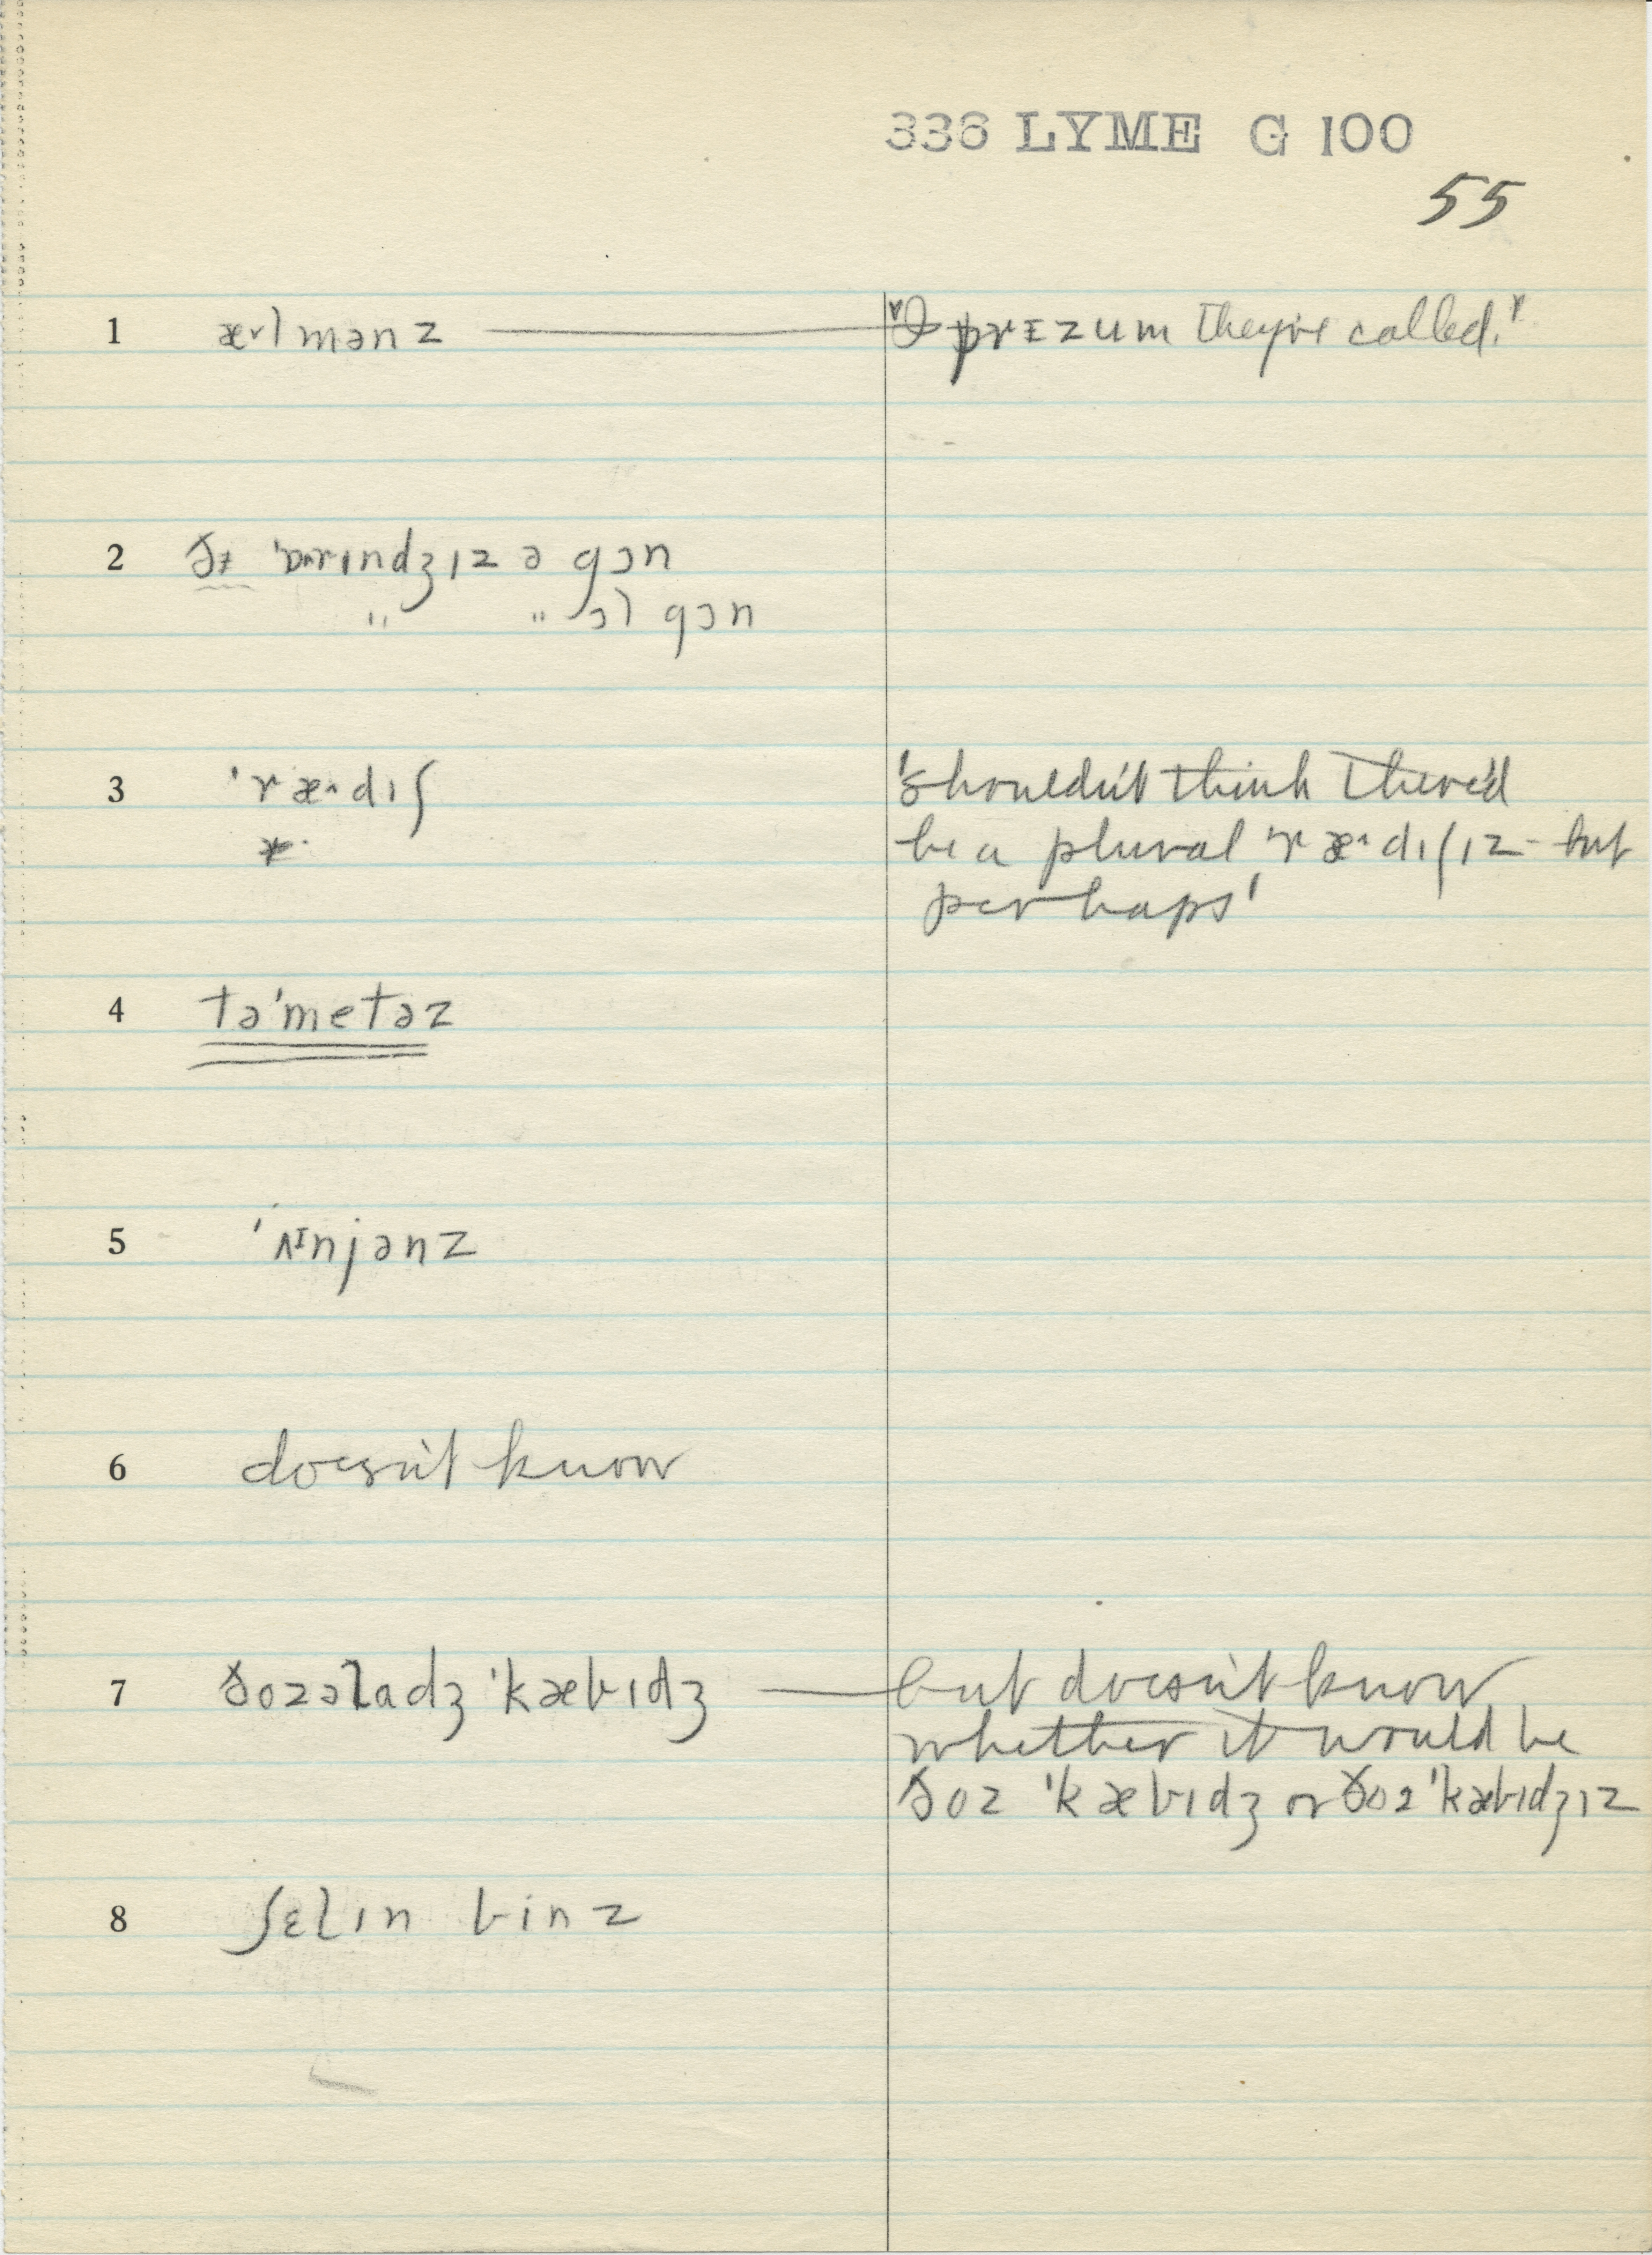 336 LYME G 100
55
1 æ˅lmənz — "I prɪzum they're called."
2 ðɨ 'ɒ˄rɪndʒɪz ə gɔn
" " ɔl gɔn
3 'ræ˄dɪʃ 'shouldn't think there'd
* be a plural 'ræ˄dɪʃɪz - but
perhaps'
4 tə'metəz
5 'ʌɪnjənz
6 doesn't know
7 ðozəladʒ 'kæbɪdʒ — but doesn't know
whether it would be
ðoz 'kæbɪdʒ or ðoz 'kæbɪdʒɪz
8 ʃɛlɪn binz